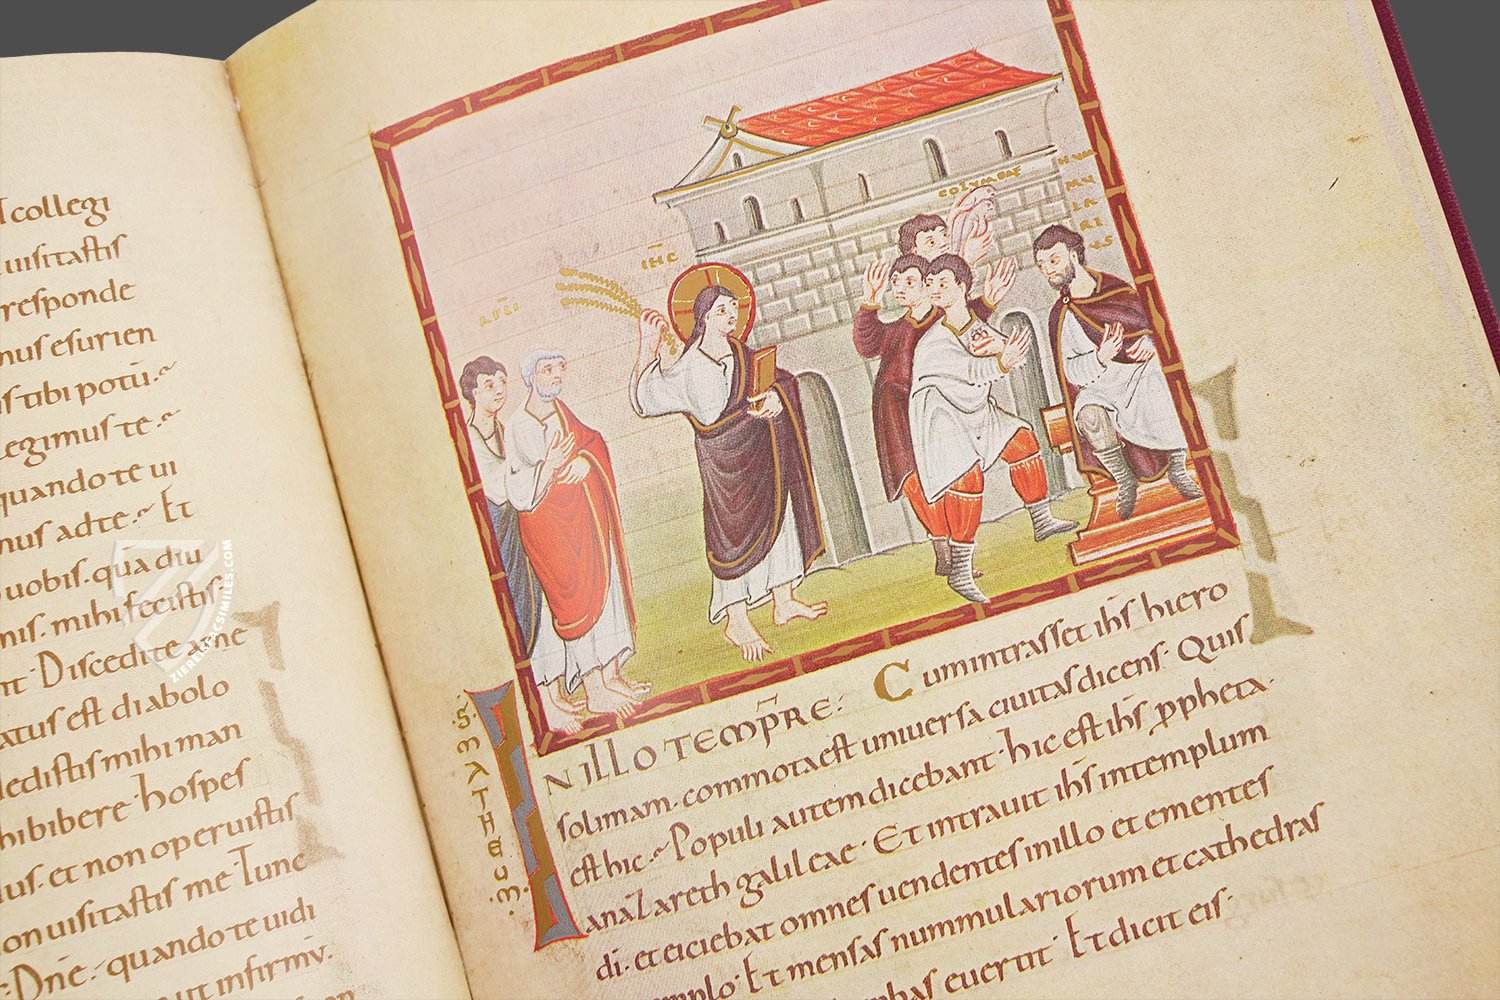 collegi
uisitastis
responde
nus esurien
s tibi potū.
legimus te.
quando te ui
nus ad te. Et
uobis. quā diu
nis. mihi fecistis.
nt Discedite a me
atus est diabolo
dedistis mihi man
bibibere hospes
us. et non operuistis
on uisitastis me Tunc
Dn̄e. quando te uidi
ut infirmū.
ZIEREIS FACSIMILES.COM
IHC
COLUMBAE
NUM
MU
LA
RI
US
S. MATHEUM.
IN ILLO TEMPRE: Cum intrasset ih̄s hiero
solimam. commota est uniuersa ciuitas dicens. Quis
est hic. Populi autem dicebant. hic est ih̄s ꝓpheta.
a nazareth galileae. Et intrauit ih̄s in templum
di. et eiciebat omnes uendentes in illo et ementes
templo. Et mensas nummulariorum et cathedras
euertit. Et dicit eis.